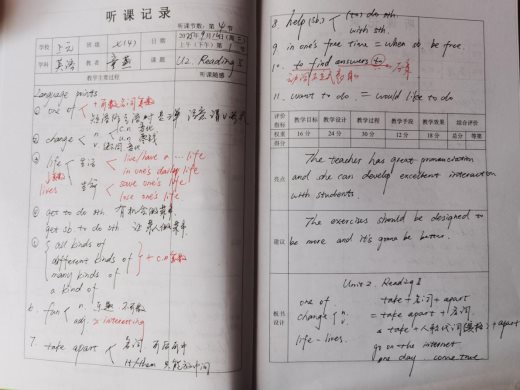 听课记录
听课节数:第 4 节
学校
上元
班级
八(4)
日期
上午(下午)第 1 节
学科
英语
教者
课题
U2. Reading II
教学主要过程
听课随感
Language points:
① one of
+可数名词复数
② change
n.
c.n
u.n
v.
③ life
生活
live/have a ... life
in one's daily life
lives
生命
save one's life
lose one's life
④ get to do sth
get sb to do sth
⑤ all kinds of
different kinds of
many kinds of
a kind of
+ c.n 复数
6. fun
n. 乐趣 不可数
adj. = interesting
7. take apart
名词
it/them 只能放中间
8. help (sb.)
(to) do sth.
with sth.
9. in one's free time = when sb. be free.
10. to find answers to
动词不定式表目的
11. want to do. = would like to do
评价指标
教学目标
教学设计
教学过程
教学手段
教学效果
综合评价
权重
16 分
24 分
30 分
12 分
18 分
总分
等第
得分
亮点
The teacher has great pronunciation
and she can develop excellent interaction
with students.
建议
The exercises should be designed to
be more and it's gonna be better.
板书设计
Unit 2 Reading II
one of
take + 名词 + apart
change
n.
v.
= take apart + 名词
take + 人称代词(宾格) + apart
life - lives.
go on the internet
one day come true